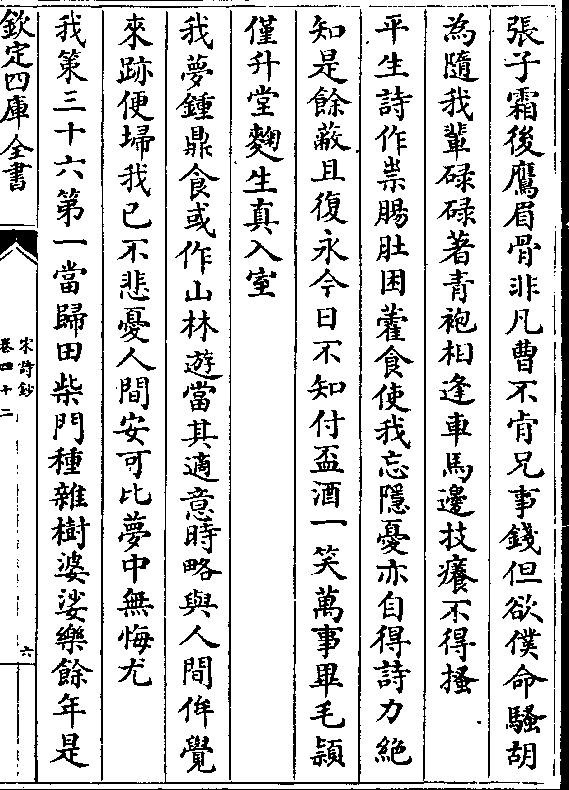 張子霜後鷹眉骨非凡曹不肯兄事錢但欲僕命騷胡
為隨我輩碌碌著青袍相逢車馬邊技癢不得搔
平生詩作祟腸肚困藿食使我忘隱憂亦自得詩力絶
知是餘蔽且復永今日不知付盃酒一笑萬事畢毛頴
僅升堂麴生真入室
我夢鍾鼎食或作山林遊當其適意時略與人間侔覺
來跡便埽我已不悲憂人間安可比夢中無悔尤
我第三十六第一當歸田柴門種雜樹婆娑樂餘年是
欽定四庫全書
宋詩鈔
卷四十二
六